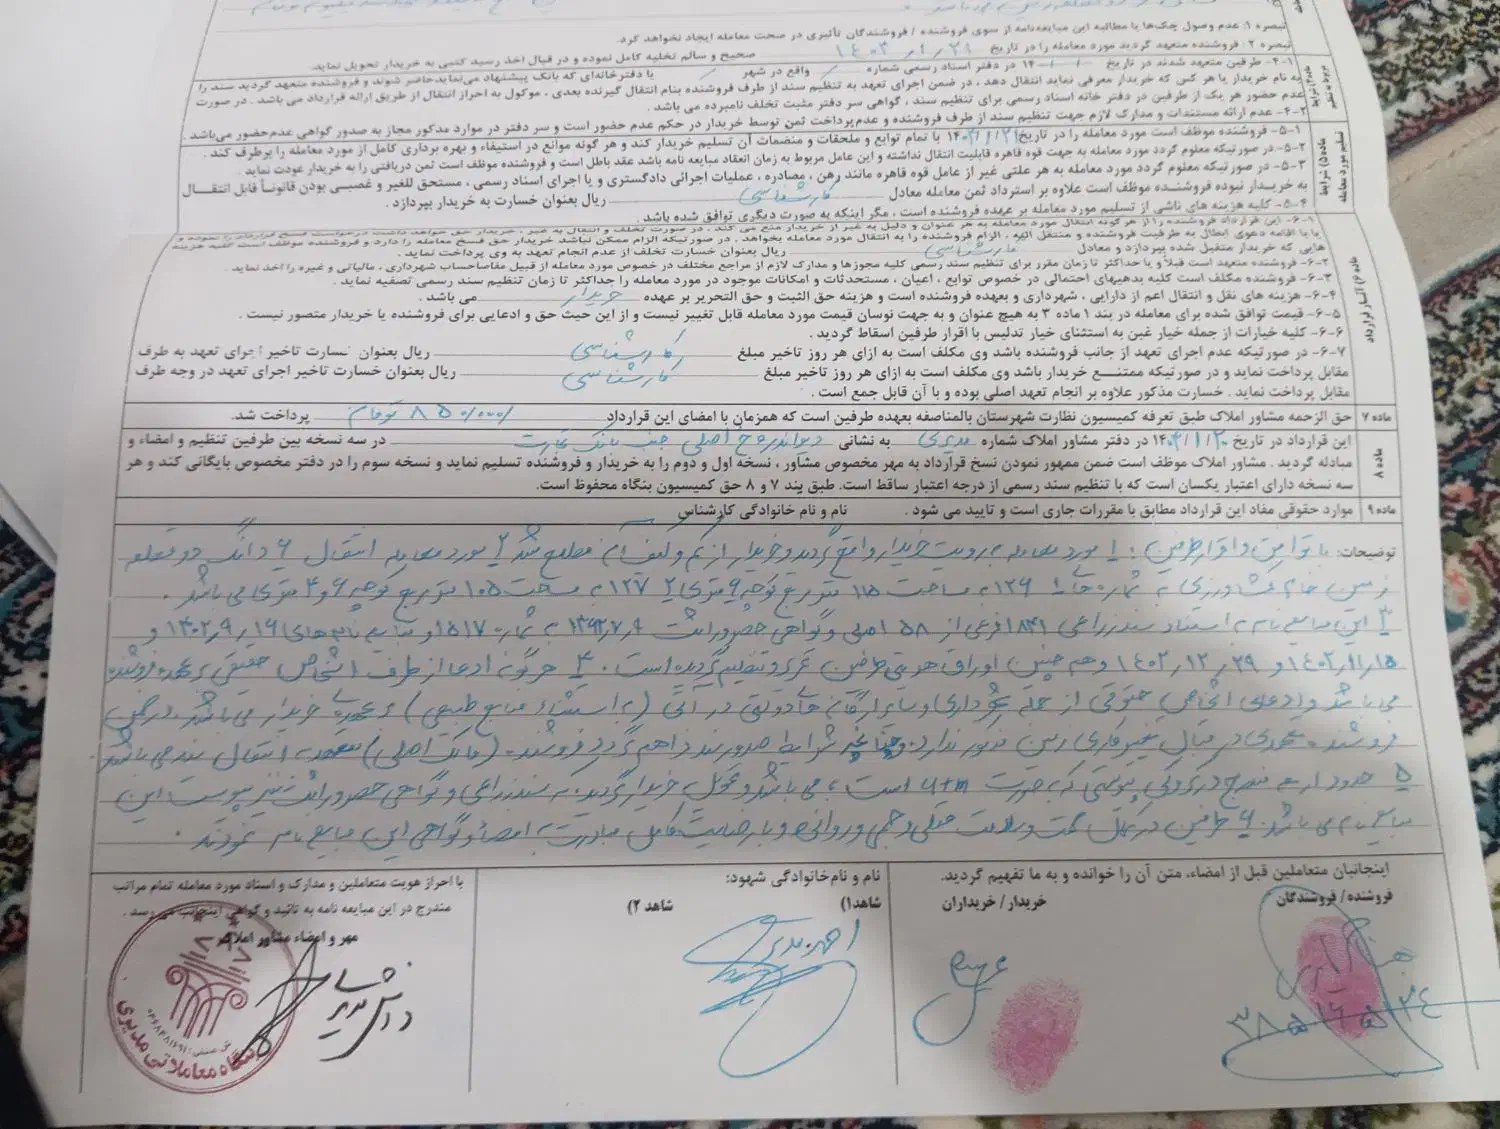 تبصره ۱: عدم وصول چک‌ها یا مطالبه این مبایعه‌نامه از سوی فروشنده / فروشندگان تأثیری در صحت معامله ایجاد نخواهد کرد.
تبصره ۲: فروشنده متعهد گردید مورد معامله را در تاریخ ۱۴۰۳/۱/۲۱ صحیح و سالم تخلیه کامل نموده و در قبال اخذ رسید کتبی به خریدار تحویل نماید.
۴-۱- طرفین متعهد شدند در تاریخ / /۱۴۰ در دفتر اسناد رسمی شماره واقع در شهر یا دفترخانه‌ای که بانک پیشنهاد می‌نماید حاضر شوند و فروشنده متعهد گردید سند را
به نام خریدار یا هر کس که خریدار معرفی نماید انتقال دهد ، در ضمن اجرای تعهد به تنظیم سند از طرف فروشنده بنام انتقال گیرنده بعدی ، موکول به احراز انتقال از طریق ارائه قرارداد می باشد . در صورت
عدم حضور هر یک از طرفین در دفتر خانه اسناد رسمی برای تنظیم سند ، گواهی سر دفتر مثبت تخلف نامبرده می باشد .
۴-۲- عدم ارائه مستندات و مدارک لازم جهت تنظیم سند از طرف فروشنده و عدم‌پرداخت ثمن توسط خریدار در حکم عدم حضور است و سر دفتر در موارد مذکور مجاز به صدور گواهی عدم‌حضور می‌باشد .
ماده ۵) شرایط تسلیم مورد معامله
۵-۱- فروشنده موظف است مورد معامله را در تاریخ ۱۴۰۳/۱/۲۱ با تمام توابع و ملحقات و منضمات آن تسلیم خریدار کند و هر گونه موانع در استیفاء و بهره برداری کامل از مورد معامله را برطرف کند .
۵-۲- در صورتیکه معلوم گردد مورد معامله به جهت قوه قاهره قابلیت انتقال نداشته و این عامل مربوط به زمان انعقاد مبایعه نامه باشد عقد باطل است و فروشنده موظف است ثمن دریافتی را به خریدار عودت نماید .
۵-۳- در صورتیکه معلوم گردد مورد معامله به هر علتی غیر از عامل قوه قاهره مانند رهن ، مصادره ، عملیات اجرائی دادگستری و یا اجرای اسناد رسمی ، مستحق للغیر و غصبی بودن قانوناً قابل انتقال
به خریدار نبوده فروشنده موظف است علاوه بر استرداد ثمن معامله معادل کارشناسی ریال بعنوان خسارت به خریدار بپردازد .
۵-۴- کلیه هزینه های ناشی از تسلیم مورد معامله بر عهده فروشنده است ، مگر اینکه به صورت دیگری توافق شده باشد .
ماده ۶) آثار قرارداد
۶-۱- این قرارداد فروشنده را از هر گونه انتقال مورد معامله به هر عنوان و دلیل به غیر از خریدار منع می کند . در صورت تخلف و انتقال به غیر ، خریدار حق خواهد داشت درخواست فسخ قرارداد را نموده و
یا با اقامه دعوی ابطال به طرفیت فروشنده و منتقل الیه ، الزام فروشنده را به انتقال مورد معامله بخواهد . در صورتیکه الزام ممکن نباشد خریدار حق فسخ معامله را دارد و فروشنده موظف است کلیه هزینه
هایی که خریدار متقبل شده بپردازد و معادل کارشناسی ریال بعنوان خسارت تخلف از عدم انجام تعهد به وی پرداخت نماید .
۶-۲- فروشنده متعهد است قبلاً و یا حداکثر تا زمان مقرر برای تنظیم سند رسمی کلیه مجوزها و مدارک لازم از مراجع مختلف در خصوص مورد معامله از قبیل مفاصاحساب شهرداری ، مالیاتی و غیره را اخذ نماید .
۶-۳- فروشنده مکلف است کلیه بدهیهای احتمالی در خصوص توابع ، اعیان ، مستحدثات و امکانات موجود در مورد معامله را حداکثر تا زمان تنظیم سند رسمی تصفیه نماید .
۶-۴- هزینه های نقل و انتقال اعم از دارایی ، شهرداری و بعهده فروشنده است و هزینه حق الثبت و حق التحریر بر عهده خریدار می باشد .
۶-۵- قیمت توافق شده برای معامله در بند ۱ ماده ۳ به هیچ عنوان و به جهت نوسان قیمت مورد معامله قابل تغییر نیست و از این حیث حق و ادعایی برای فروشنده یا خریدار متصور نیست .
۶-۶- کلیه خیارات از جمله خیار غبن به استثنای خیار تدلیس با اقرار طرفین اسقاط گردید .
۶-۷- در صورتیکه عدم اجرای تعهد از جانب فروشنده باشد وی مکلف است به ازای هر روز تاخیر مبلغ کارشناسی ریال بعنوان خسارت تاخیر اجرای تعهد به طرف
مقابل پرداخت نماید و در صورتیکه ممتنع خریدار باشد وی مکلف است به ازای هر روز تاخیر مبلغ کارشناسی ریال بعنوان خسارت تاخیر اجرای تعهد در وجه طرف
مقابل پرداخت نماید . خسارت مذکور علاوه بر انجام تعهد اصلی بوده و با آن قابل جمع است .
ماده ۷ حق الزحمه مشاور املاک طبق تعرفه کمیسیون نظارت شهرستان بالمناصفه بعهده طرفین است که همزمان با امضای این قرارداد ۸۵۰/۰۰۰/ تومان پرداخت شد.
ماده ۸ این قرارداد در تاریخ ۱۴۰۳/۱/۲۰ در دفتر مشاور املاک شماره مدیری به نشانی دیواندره خ اصلی جنب بانک تجارت در سه نسخه بین طرفین تنظیم و امضاء و
مبادله گردید . مشاور املاک موظف است ضمن ممهور نمودن نسخ قرارداد به مهر مخصوص مشاور ، نسخه اول و دوم را به خریدار و فروشنده تسلیم نماید و نسخه سوم را در دفتر مخصوص بایگانی کند و هر
سه نسخه دارای اعتبار یکسان است که با تنظیم سند رسمی از درجه اعتبار ساقط است. طبق بند ۷ و ۸ حق کمیسیون بنگاه محفوظ است.
ماده ۹ موارد حقوقی مفاد این قرارداد مطابق با مقررات جاری است و تایید می شود . نام و نام خانوادگی کارشناس
توضیحات: با توافق و اقرار طرفین : ۱ مورد معامله به رویت خریدار واقع گردید و خریدار از کم و کیف آن مطلع شد ۲ مورد معامله انتقال ۶ دانگ دو قطعه
زمین خام کشاورزی به شماره های ۱ ۱۲۹ به مساحت ۱۱۵ متر مربع کوچه ۶ متری ۲ ۱۲۷ به مساحت ۱۰۵ متر مربع کوچه ۶ و ۴ متری می باشد .
۳ این مبایعه نامه به استناد سند زراعی ۱۸۳۱ فرعی از ۵۸ اصلی و گواهی حصر وراثت ۱۳۹۲٫۷٫۹ به شماره ۱۵۱۷ و مبایعه نامه های ۱۴۰۲٫۹٫۱۹ و
۱۴۰۲/۱۱/۱۵ و ۱۴۰۲٫۱۲٫۲۹ و هم چنین اوراق هویتی طرفین تحریر و تنظیم گردیده است . ۴ هر گونه ادعا از طرف اشخاص حقیقی بر عهده فروشنده
می باشد و ادعای اشخاص حقوقی از جمله شهرداری و سایر ارگانهای دولتی در آتی (به استثناء منابع طبیعی) بر عهده خریدار می باشد . در ضمن
فروشنده تعهدی در قبال تغییر کاربری زمین مذکور ندارد و چنانچه شرایط صدور سند فراهم گردد فروشنده (مالک اصلی) متعهد به انتقال سند می باشد
۵ حدود اربعه مندرج در کروکی پیوستی که بصورت utm است ، می باشد و تحویل خریدار گردید که سند زراعی و گواهی حصر وراثت نیز پیوست این
مبایعه نامه می باشد ۶ طرفین در کمال صحت و سلامت عقلی و جسمی و روانی و با رضایت کامل مبادرت به امضاء و گواهی این مبایعه نامه نمودند .
اینجانبان متعاملین قبل از امضاء، متن آن را خوانده و به ما تفهیم گردید.
فروشنده / فروشندگان
خریدار / خریداران
نام و نام‌خانوادگی شهود:
شاهد۱)
شاهد ۲)
با احراز هویت متعاملین و مدارک و اسناد مورد معامله تمام مراتب
مندرج در این مبایعه نامه به تائید و گواهی اینجانب می رسد .
مهر و امضاء مشاور املاک
احمد مدیری
دانش مدیری
بنگاه معاملاتی مدیری